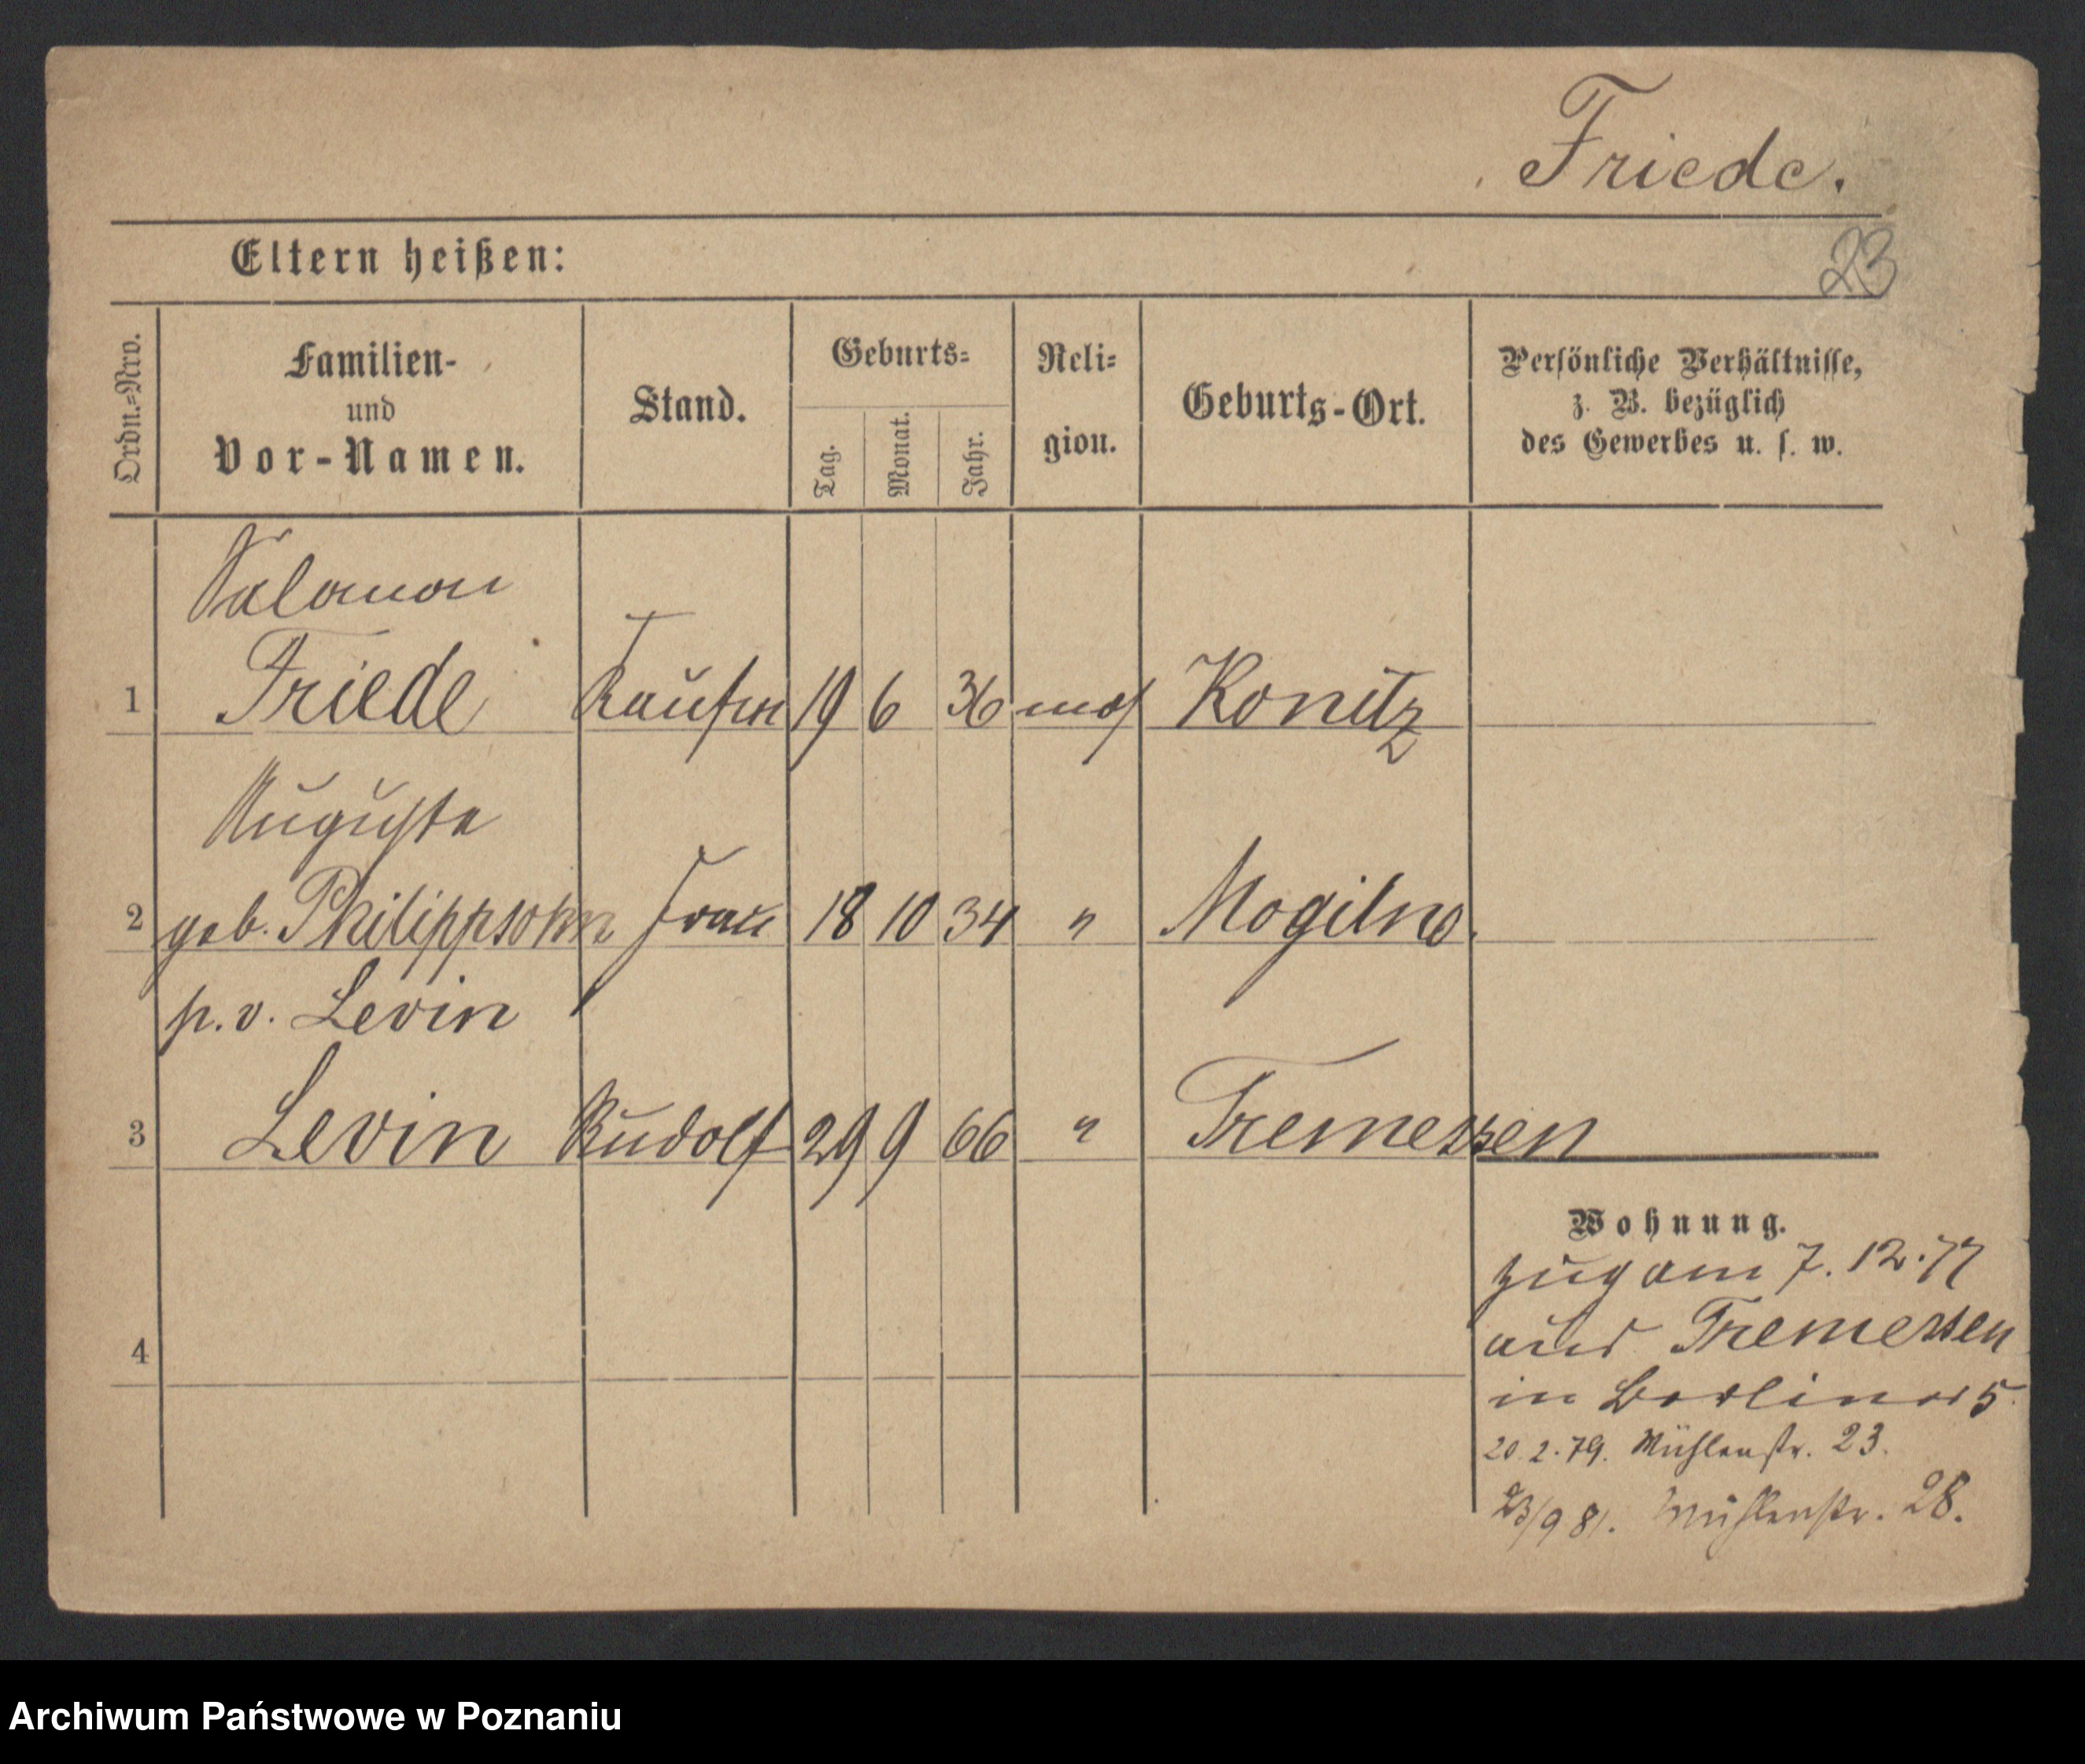 Friede.
23
Eltern heißen:
Ordn.-Nro.
Familien-
und
Vor-Namen.
Stand.
Geburts-
Tag.
Monat.
Jahr.
Reli-
gion.
Geburts-Ort.
Persönliche Verhältnisse,
z. B. bezüglich
des Gewerbes u. s. w.
Salomon
1 Friede Kaufm 19 6 36 mos Konitz
Auguste
2 geb. Philippsohn Frau 18 10 34 " Mogilno.
p. v. Levin
3 Levin Rudolf 29 9 66 " Tremessen
4
Wohnung.
zugam 7. 12. 77
aus Tremessen
in 5
20. 2. 79. Mühlenstr. 23.
23/9 81. Mühlenstr. 28.
Archiwum Państwowe w Poznaniu